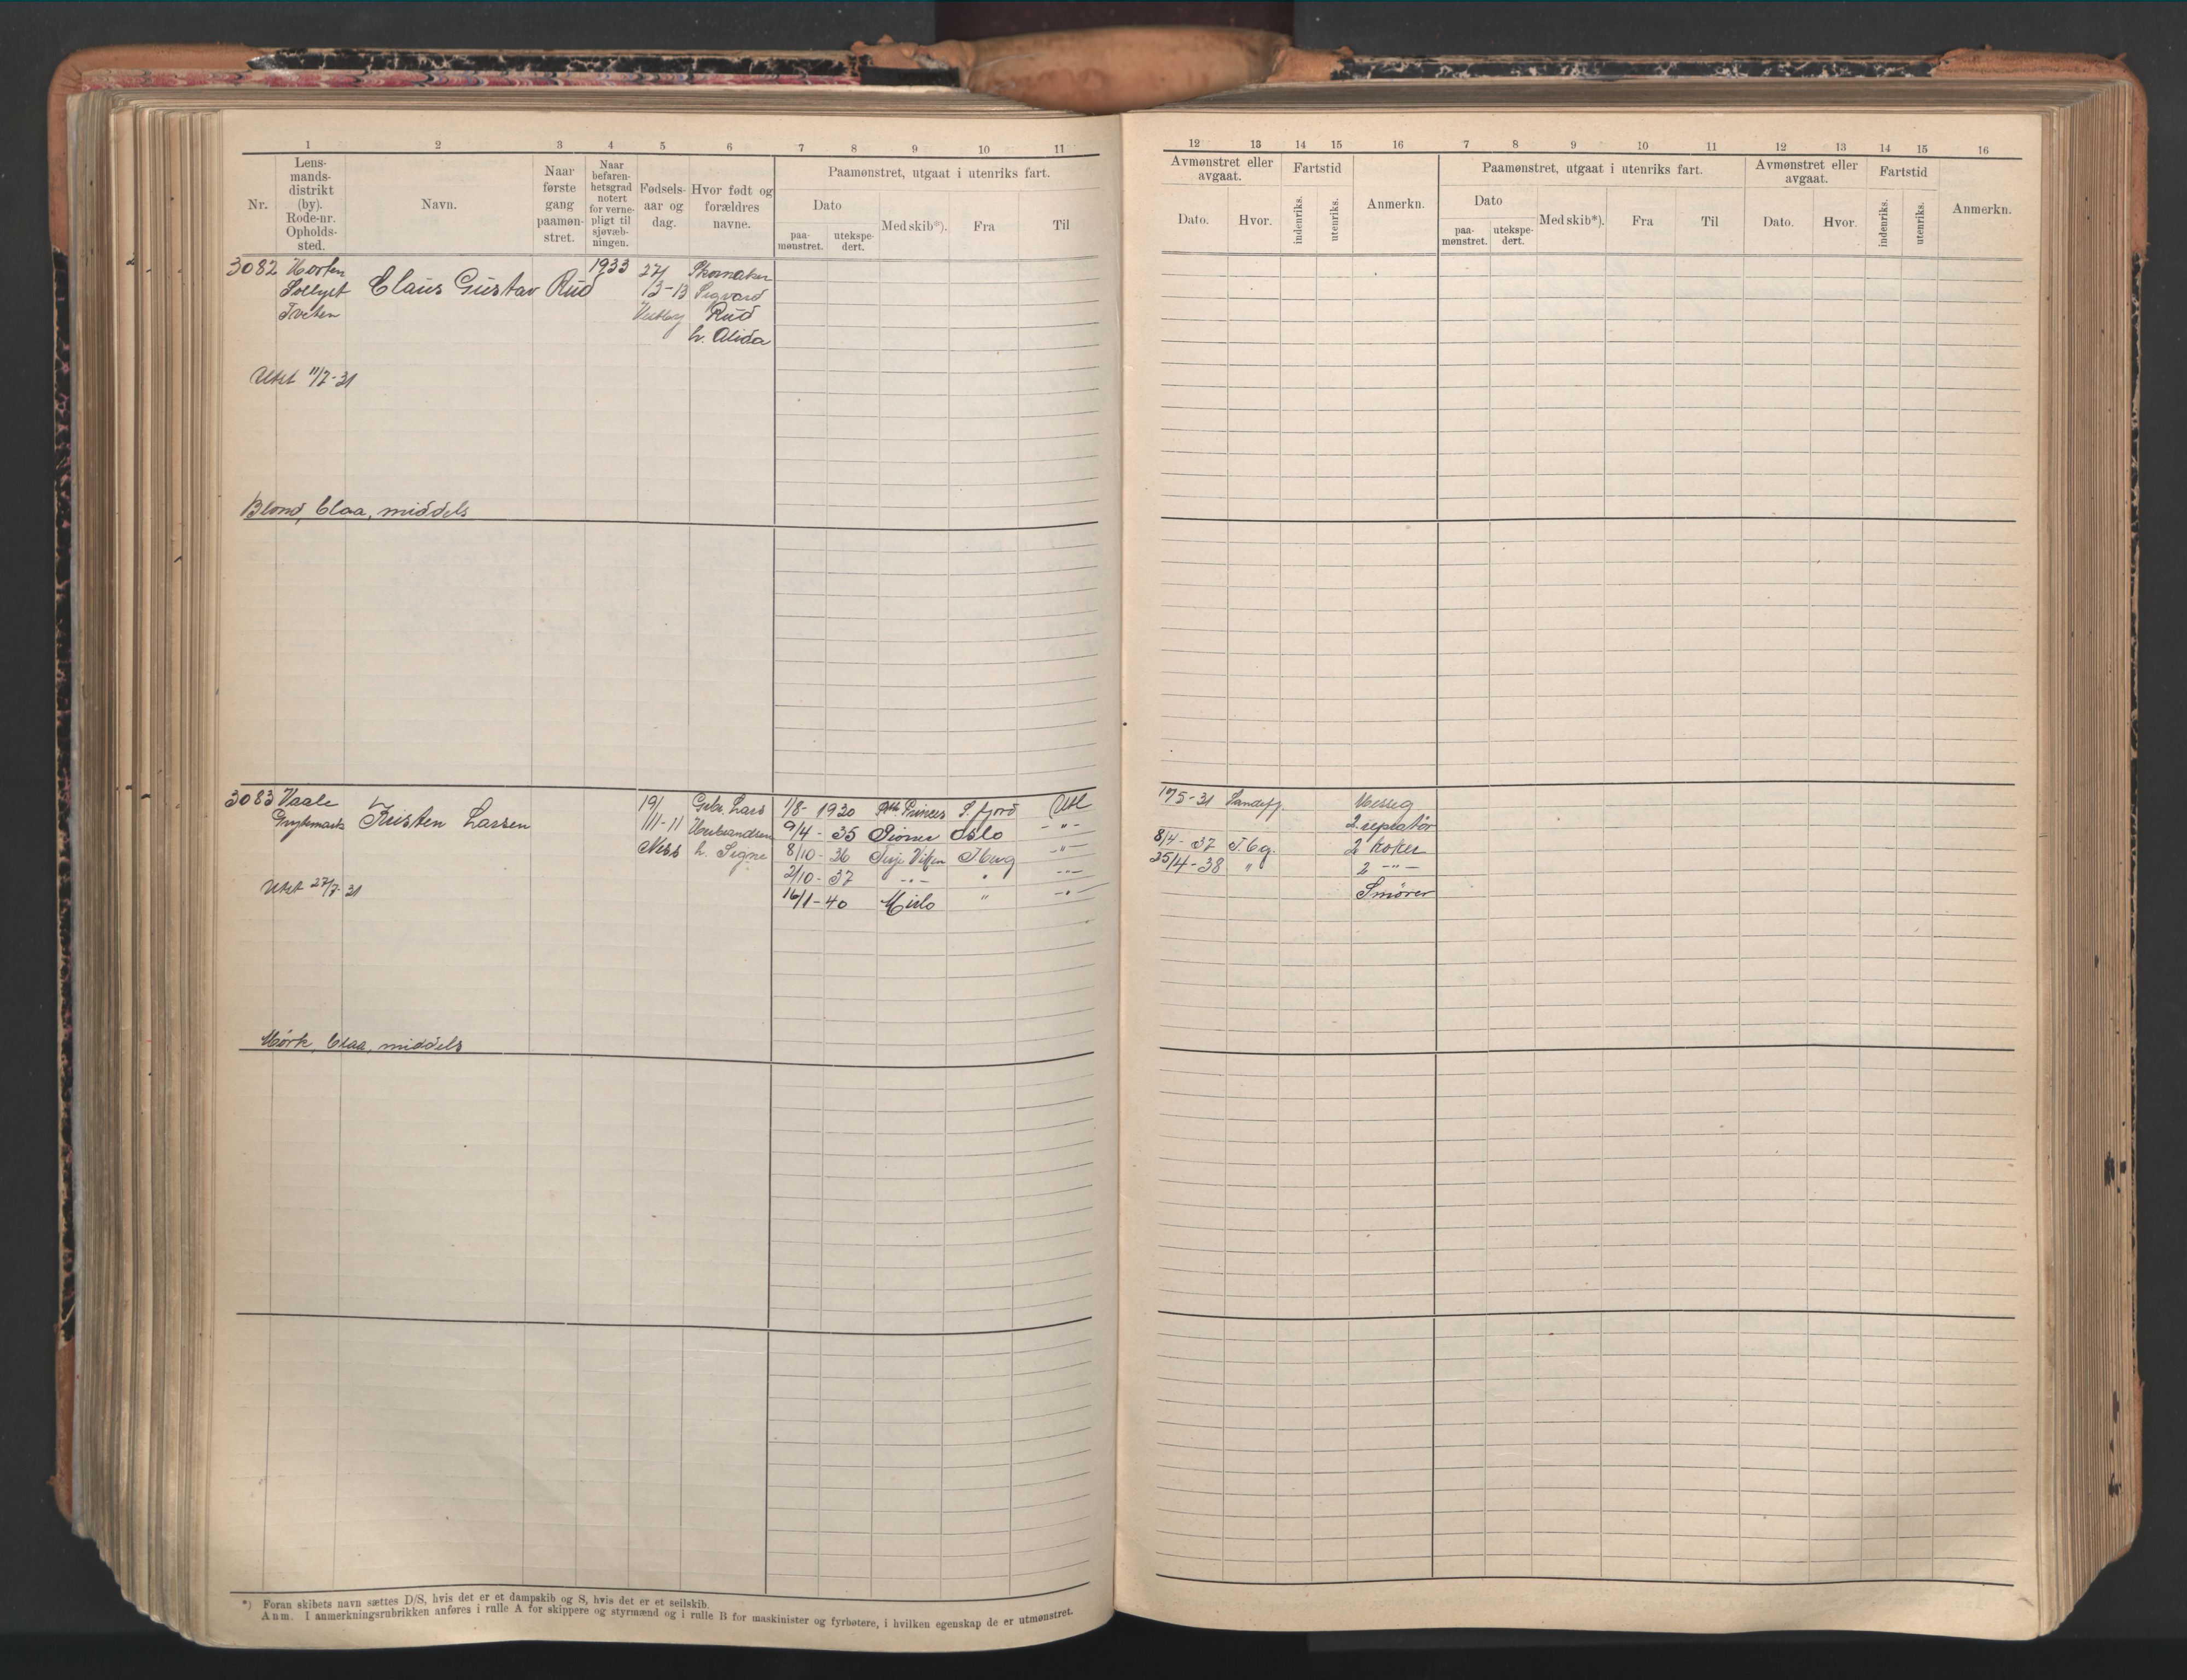 1 2 3 4 5 6 7 8 9 10 11
Nr.
Lens-
mands-
distrikt
(by).
Rode-nr.
Opholds-
sted.
Navn.
Naar
første
gang
paamøn-
stret.
Naar
befaren-
hetsgrad
notert
for verne-
pligt til
sjøvæb-
ningen.
Fødsels-
aar og
dag.
Hvor født og
forældres
navne.
Paamønstret, utgaat i utenriks fart.
Dato
paa-
mønstret.
utekspe-
dert.
Med skib*).
Fra
Til
3082 Horten
Sollyst
Tveten
Claus Gustav Rud
1933
27/
3-13
Vestby
Skomaker
Sigvard
Rud
h. Alida
Utst 11/7-31
Blond, blaa, middels
3083 Vaale
Kristen Larsen
19/
11-11
Ness
Gbr. Lars
h. Signe
1/8- 1930 Ole Princes S. fjord Utl
9/4 - 35 Pioner Oslo -"-
8/10 - 36 Terje Viken Tberg -"-
2/10 - 37 -"- " -"-
16/1 - 40 Mirlo " -"-
Utst 27/7-31
Mörk, blaa, middels
*) Foran skibets navn sættes D/S, hvis det er et dampskib og S, hvis det er et seilskib.
Anm. I anmerkningsrubrikken anføres i rulle A for skippere og styrmænd og i rulle B for maskinister og fyrbøtere, i hvilken egenskap de er utmønstret.
12 13 14 15 16 7 8 9 10 11 12 13 14 15 16
Avmønstret eller
avgaat.
Dato.
Hvor.
Fartstid
indenriks.
utenriks.
Anmerkn.
Paamønstret, utgaat i utenriks fart.
Dato
paa-
mønstret.
utekspe-
dert.
Med skib*).
Fra
Til
Avmønstret eller
avgaat.
Dato.
Hvor.
Fartstid
indenriks.
utenriks.
Anmerkn.
1/5-31 Sandefj. Messeg
2. repratör
8/4-37 Tbg. 2 koker
25/4-38 " 2 -"-
Smörer